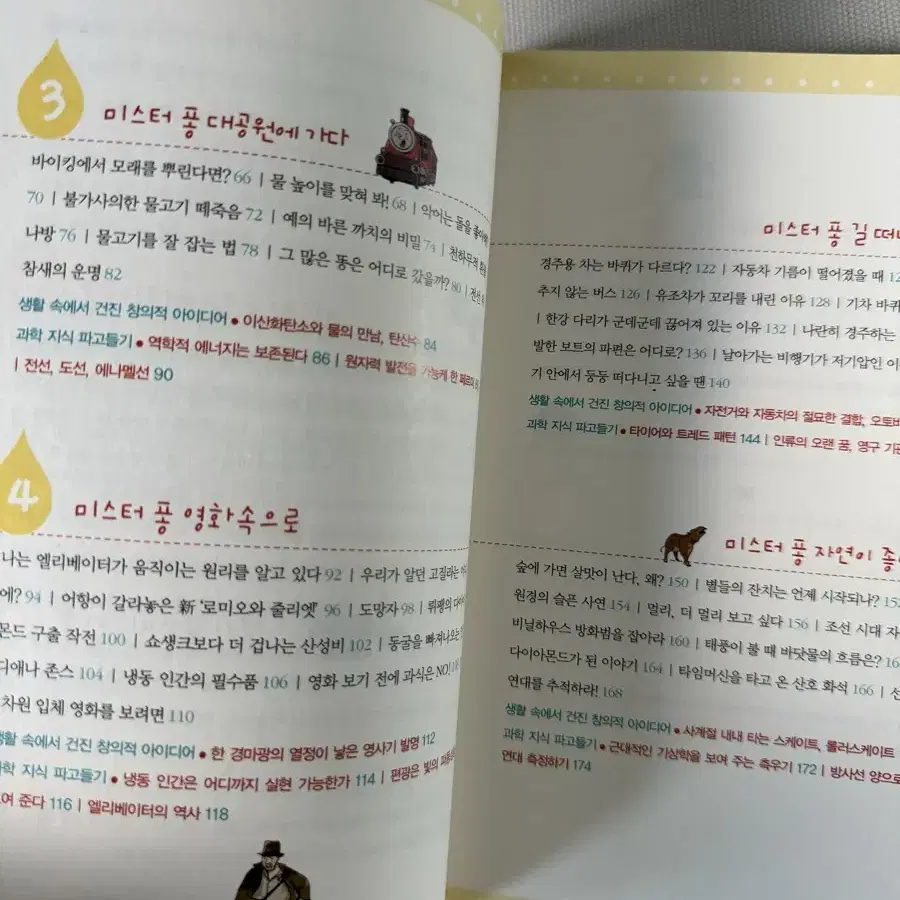 3
미스터 퐁 대공원에 가다
바이킹에서 모래를 뿌린다면? 66 | 물 높이를 맞혀 봐! 68 | 악어는 돌을 좋아해
70 | 불가사의한 물고기 떼죽음 72 | 예의 바른 까치의 비밀 74 | 천하무적
나방 76 | 물고기를 잘 잡는 법 78 | 그 많은 똥은 어디로 갔을까? 80 | 전선
참새의 운명 82
생활 속에서 건진 창의적 아이디어 ● 이산화탄소와 물의 만남, 탄산수 84
과학 지식 파고들기 ● 역학적 에너지는 보존된다 86 | 원자력 발전을 가능케 한
| 전선, 도선, 에나멜선 90
4
미스터 퐁 영화 속으로
나는 엘리베이터가 움직이는 원리를 알고 있다 92 | 우리가 알던 고질라는
에? 94 | 어항이 갈라놓은 新 '로미오와 줄리엣' 96 | 도망자 98 | 뤼팽의
몬드 구출 작전 100 | 쇼생크보다 더 겁나는 산성비 102 | 동굴을 빠져나오는
디애나 존스 104 | 냉동 인간의 필수품 106 | 영화 보기 전에 과식은 NO!
차원 입체 영화를 보려면 110
생활 속에서 건진 창의적 아이디어 ● 한 경마광의 열정이 낳은 영사기 발명 112
과학 지식 파고들기 ● 냉동 인간은 어디까지 실현 가능한가 114 | 편광은 빛의
여 준다 116 | 엘리베이터의 역사 118
미스터 퐁 길 떠나
경주용 차는 바퀴가 다르다? 122 | 자동차 기름이 떨어졌을 때
추지 않는 버스 126 | 유조차가 꼬리를 내린 이유 128 | 기차 바퀴
| 한강 다리가 군데군데 끊어져 있는 이유 132 | 나란히 경주하는
발한 보트의 파편은 어디로? 136 | 날아가는 비행기가 저기압인 이
기 안에서 둥둥 떠다니고 싶을 땐 140
생활 속에서 건진 창의적 아이디어 ● 자전거와 자동차의 절묘한 결합, 오토바
과학 지식 파고들기 ● 타이어와 트레드 패턴 144 | 인류의 오랜 꿈, 영구 기관
미스터 퐁 자연이 좋아
숲에 가면 살맛이 난다, 왜? 150 | 별들의 잔치는 언제 시작되나? 152
원경의 슬픈 사연 154 | 멀리, 더 멀리 보고 싶다 156 | 조선 시대 자
비닐하우스 방화범을 잡아라 160 | 태풍이 불 때 바닷물의 흐름은?
다이아몬드가 된 이야기 164 | 타임머신을 타고 온 산호 화석 166 | 선
연대를 추적하라! 168
생활 속에서 건진 창의적 아이디어 ● 사계절 내내 타는 스케이트, 롤러스케이트
과학 지식 파고들기 ● 근대적인 기상학을 보여 주는 측우기 172 | 방사선 양으로
연대 측정하기 174